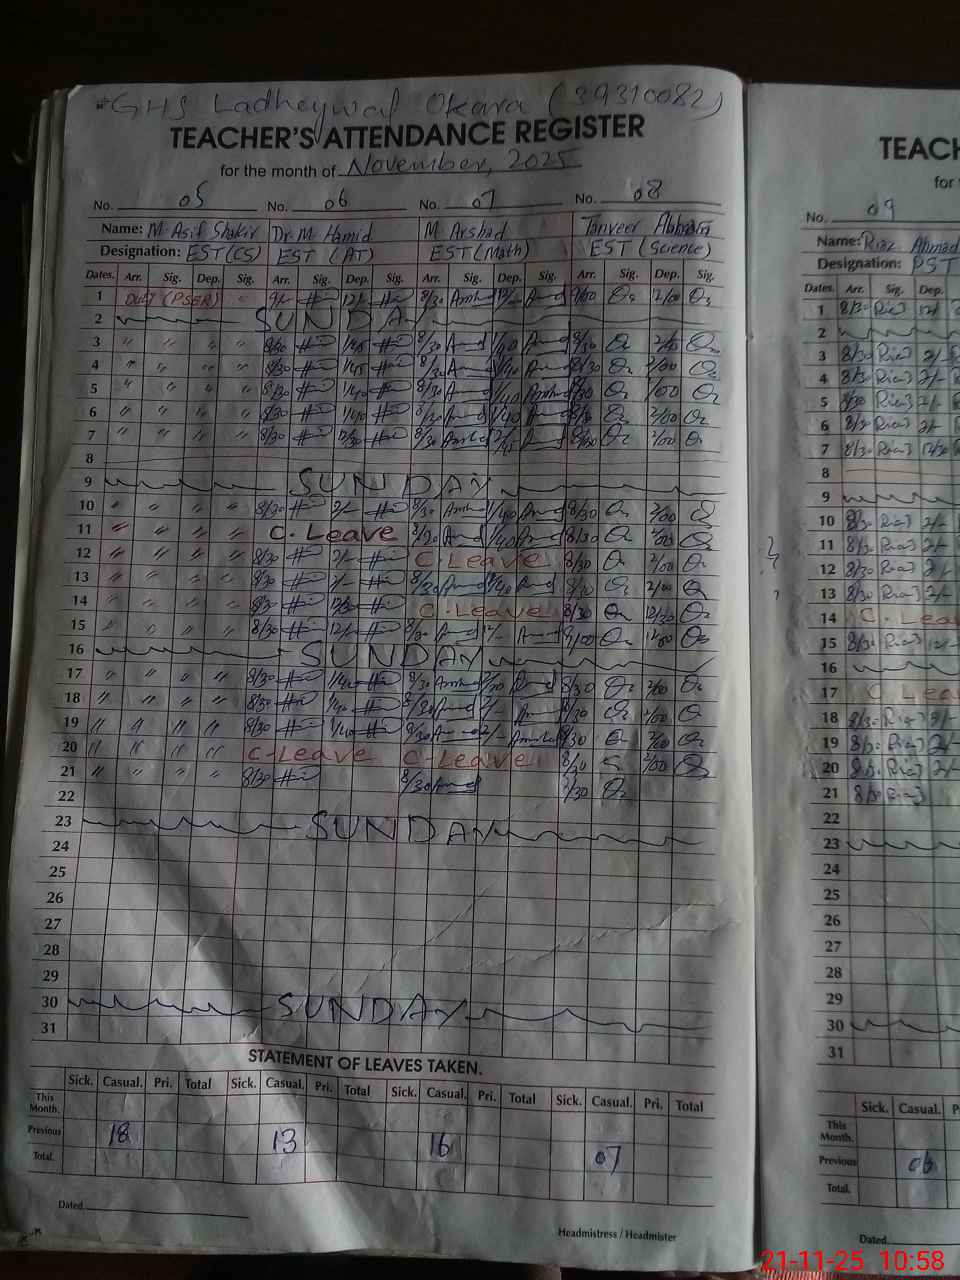 GHS Ladheywal Okara (39310082)
TEACHER'S ATTENDANCE REGISTER
for the month of November, 2025
No. 05 No. 06 No. 07 No. 08
Name: M. Asif Shakir Dr. M. Hamid M. Arshad Tanveer
Designation: EST (CS) EST (AT) EST (Math) EST (Science)
Dates. Arr. Sig. Dep. Sig. Arr. Sig. Dep. Sig. Arr. Sig. Dep. Sig. Arr. Sig. Dep. Sig.
1 Duty (PSER) 9/- 12/- 8/30 12/- 9/00 12/00
2 SUNDAY
3 " " " " 8/30 1/45 8/30 1/40 8/30 2/00
4 " " " " 8/30 1/45 8/30 1/40 8/30 2/00
5 " " " " 8/30 1/40 8/30 1/40 8/30 2/00
6 " " " " 8/30 1/40 8/30 1/40 8/30 2/00
7 " " " " 8/30 12/30 8/30 8/30 2/00
8
9 SUNDAY
10 " " " " 8/30 2/- 8/30 1/40 8/30 2/00
11 " " " " C. Leave 8/30 1/40 8/30 2/00
12 " " " " 8/30 2/- C. Leave 8/30 2/00
13 " " " " 8/30 2/- 8/30 1/40 8/30 2/00
14 " " " " 8/30 12/30 C. Leave 8/30 12/30
15 " " " " 8/30 12/- 8/30 12/- 9/00 12/00
16 SUNDAY
17 " " " " 8/30 1/40 8/30 2/00 8/30 2/00
18 " " " " 8/30 1/40 8/30 2/- 8/30 2/00
19 " " " " 8/30 1/40 8/30 2/- 8/30 2/00
20 " " " " C-Leave C. Leave 8/30 2/00
21 " " " " 8/30 8/30 8/30
22
23 SUNDAY
24
25
26
27
28
29
30 SUNDAY
31
STATEMENT OF LEAVES TAKEN.
Sick. Casual. Pri. Total Sick. Casual. Pri. Total Sick. Casual. Pri. Total Sick. Casual. Pri. Total
This Month.
Previous 18 13 16 07
Total.
Dated.
Headmistress / Headmister
TEACH
for
No. 09
Name: Riaz Ahmad
Designation: PST
Dates. Arr. Sig. Dep.
1 8/30 Riaz 12/
2
3 8/30 Riaz 2/-
4 8/30 Riaz 2/-
5 8/30 Riaz 2/-
6 8/30 Riaz 2/-
7 8/30 Riaz 12/30
8
9
10 8/30 Riaz 2/-
11 8/30 Riaz 2/-
12 8/30 Riaz 2/-
13 8/30 Riaz 2/-
14 C. Lea
15 8/30 Riaz 12/-
16
17 C Lea
18 8/30 Riaz 2/-
19 8/30 Riaz 2/-
20 8/30 Riaz 2/-
21 8/30 Riaz
22
23
24
25
26
27
28
29
30
31
Sick. Casual. P
This Month.
Previous 06
Total.
Dated.
21-11-25 10:58